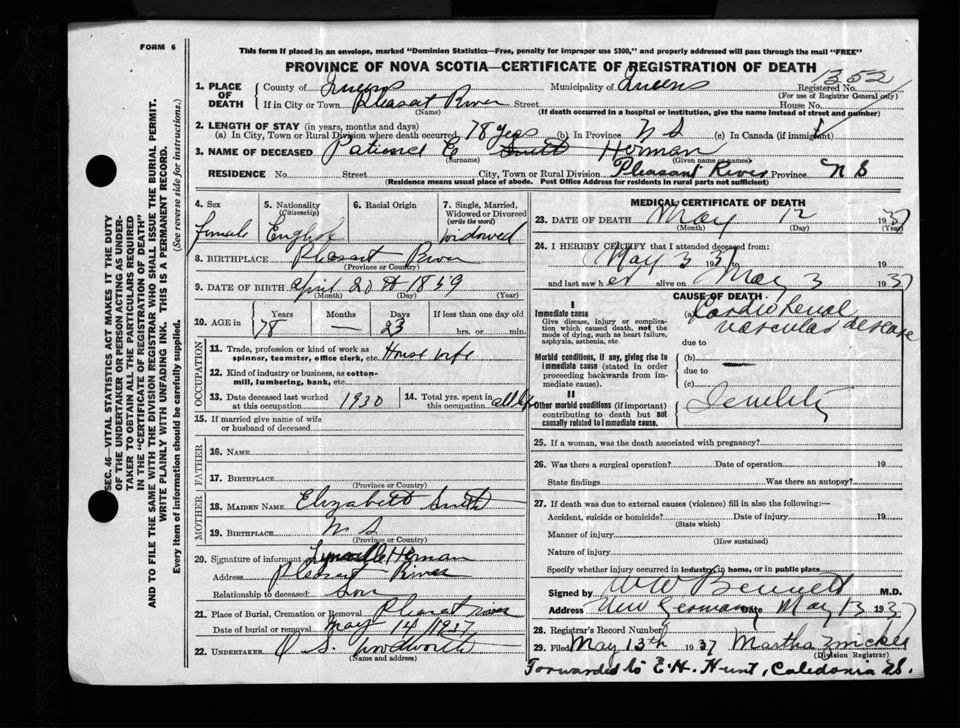 FORM 6
This form if placed in an envelope, marked "Dominion Statistics—Free, penalty for improper use $300," and properly addressed will pass through the mail "FREE"
PROVINCE OF NOVA SCOTIA—CERTIFICATE OF REGISTRATION OF DEATH
1352
1. PLACE OF DEATH County of Queens Municipality of Queens Registered No.
(For use of Registrar General only)
If in City or Town Pleasant River Street House No.
(Name) (If death occurred in a hospital or institution, give the name instead of street and number)
2. LENGTH OF STAY (in years, months and days)
(a) In City, Town or Rural Division where death occurred 78 years (b) In Province N S (c) In Canada (if immigrant)
3. NAME OF DECEASED E Smith Herman
(Surname) (Given name or names)
RESIDENCE No. Street City, Town or Rural Division Pleasant River Province N S
(Residence means usual place of abode. Post Office Address for residents in rural parts not sufficient)
4. Sex female
5. Nationality (Citizenship) English
6. Racial Origin
7. Single, Married, Widowed or Divorced (write the word) widowed
8. BIRTHPLACE Pleasant River
(Province or Country)
9. DATE OF BIRTH April 20th 1859
(Month) (Day) (Year)
10. AGE in Years 78 Months — Days 23 If less than one day hrs. or min.
OCCUPATION
11. Trade, profession or kind of work as spinner, teamster, office clerk, etc. House wife
12. Kind of industry or business, as cotton-mill, lumbering, bank, etc.
13. Date deceased last worked at this occupation 1930
14. Total yrs. spent in this occupation all life
15. If married give name of wife or husband of deceased
FATHER
16. Name
17. Birthplace
(Province or Country)
MOTHER
18. Maiden Name Elizabeth Smith
19. Birthplace N S
(Province or Country)
20. Signature of informant Herman
Address Pleasant River
Relationship to deceased Son
21. Place of Burial, Cremation or Removal Pleasant River
Date of burial or removal May 14 1937
22. Undertaker S. Woodworth
(Name and address)
MEDICAL CERTIFICATE OF DEATH
23. DATE OF DEATH May 12 1937
(Month) (Day) (Year)
24. I HEREBY CERTIFY that I attended deceased from:
May 3 1937 to
and last saw her alive on May 3 1937
CAUSE OF DEATH
I
Immediate cause
Give disease, injury or complication which caused death, not the mode of dying, such as heart failure, asphyxia, asthenia, etc.
(a) Cardio Renal vascular disease
due to
Morbid conditions, if any, giving rise to immediate cause (stated in order proceeding backwards from immediate cause).
(b) —
due to
(c)
II
Other morbid conditions (if important) contributing to death but not causally related to immediate cause.
Senility
25. If a woman, was the death associated with pregnancy?
26. Was there a surgical operation? Date of operation 19
State findings Was there an autopsy?
27. If death was due to external causes (violence) fill in also the following:—
Accident, suicide or homicide? Date of injury 19
(State which)
Manner of injury
(How sustained)
Nature of injury
Specify whether injury occurred in industry, in home, or in public place
Signed by W W Bennett M.D.
Address New Germany Date May 13 1937
28. Registrar's Record Number
29. Filed May 13th 1937 Martha
(Division Registrar)
Forwarded to E. H. Hunt, Caledonia NS.
SEC. 46—VITAL STATISTICS ACT MAKES IT THE DUTY
OF THE UNDERTAKER OR PERSON ACTING AS UNDER-
TAKER TO OBTAIN ALL THE PARTICULARS REQUIRED
IN THE "CERTIFICATE OF REGISTRATION OF DEATH"
AND TO FILE THE SAME WITH THE DIVISION REGISTRAR WHO SHALL ISSUE THE BURIAL PERMIT.
WRITE PLAINLY WITH UNFADING INK. THIS IS A PERMANENT RECORD.
Every item of information should be carefully supplied. (See reverse side for instructions.)